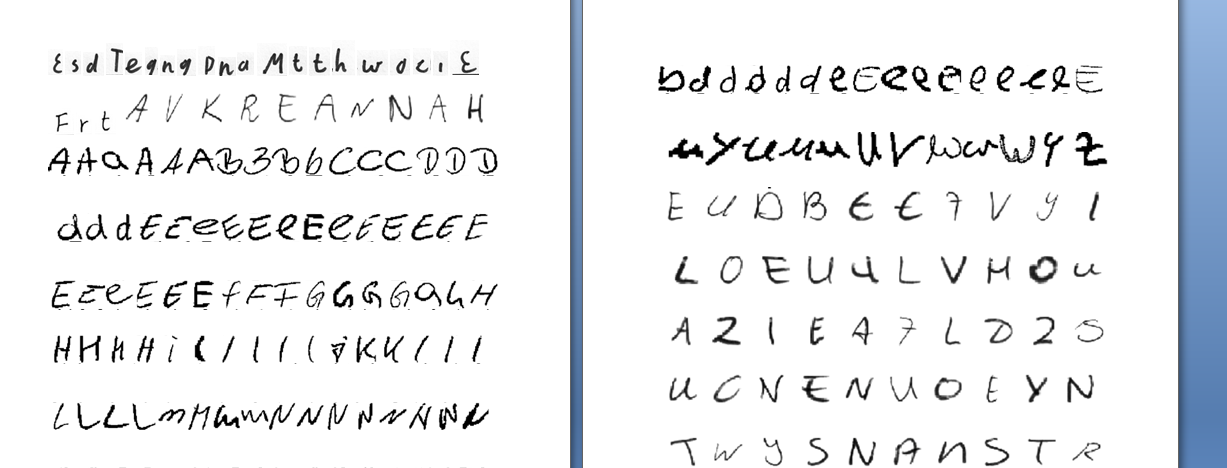 E s d T e g n g D n a M t t h w o c i E
F r t A V K R E A N N A H
A A a A A A B 3 B b C C C D D D
d d d E E e E E e E e E E E E E
E E e E E E f F F G G G G a G H
H H H H i l l l l K K l l l
L L L L m M m m N N N N N A N N
b d d d d d e E e e e e e e e e E
u y u u u u V w w W Y Z
E U D B E E 7 V y 1
L O E U 4 L V H O u
A 2 1 E 4 7 L D 2 S
U C N E N U O E Y N
T W Y S N A n S T R